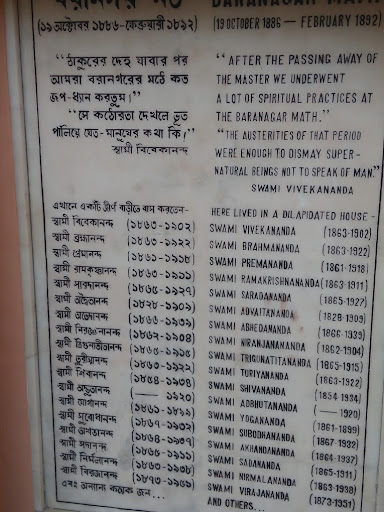 বরানগর মঠ
(১৯ অক্টোবর ১৮৮৬-ফেব্রুয়ারী ১৮৯২)
"ঠাকুরের দেহ যাবার পর
আমরা বরানগরের মঠে কত
জপ-ধ্যান করতুম।"
"সে কঠোরতা দেখলে ভূত
পালিয়ে যেত-মানুষের কথা কি।"
স্বামী বিবেকানন্দ
এখানে একটি জীর্ণ বাড়ীতে বাস করতেন-
স্বামী বিবেকানন্দ (১৮৬৩-১৯০২)
স্বামী ব্রহ্মানন্দ (১৮৬৩-১৯২২)
স্বামী প্রেমানন্দ (১৮৬১-১৯১৮)
স্বামী রামকৃষ্ণানন্দ (১৮৬৩-১৯১১)
স্বামী সারদানন্দ (১৮৬৫-১৯২৭)
স্বামী অদ্বৈতানন্দ (১৮২৮-১৯০৯)
স্বামী অভেদানন্দ (১৮৬৬-১৯৩৯)
স্বামী নিরঞ্জনানন্দ (১৮৬২-১৯০৪)
স্বামী ত্রিগুণাতীতানন্দ (১৮৬৫-১৯১৫)
স্বামী তুরীয়ানন্দ (১৮৬৩-১৯২২)
স্বামী শিবানন্দ (১৮৫৪-১৯৩৪)
স্বামী অদ্ভুতানন্দ (—— ১৯২০)
স্বামী যোগানন্দ (১৮৬১-১৮৯৯)
স্বামী সুবোধানন্দ (১৮৬৭-১৯৩২)
স্বামী অখণ্ডানন্দ (১৮৬৪-১৯৩৭)
স্বামী সদানন্দ (১৮৬৫-১৯১১)
স্বামী নির্মলানন্দ (১৮৬৩-১৯৩৮)
স্বামী বিরজানন্দ (১৮৭৩-১৯৫১)
এবং অন্যান্য কয়েক জন...
BARANAGAR MATH
(19 OCTOBER 1886 – FEBRUARY 1892)
"AFTER THE PASSING AWAY OF
THE MASTER WE UNDERWENT
A LOT OF SPIRITUAL PRACTICES AT
THE BARANAGAR MATH."
"THE AUSTERITIES OF THAT PERIOD
WERE ENOUGH TO DISMAY SUPER-
NATURAL BEINGS NOT TO SPEAK OF MAN."
SWAMI VIVEKANANDA
HERE LIVED IN A DILAPIDATED HOUSE -
SWAMI VIVEKANANDA (1863-1902)
SWAMI BRAHMANANDA (1863-1922)
SWAMI PREMANANDA (1861-1918)
SWAMI RAMAKRISHNANANDA (1863-1911)
SWAMI SARADANANDA (1865-1927)
SWAMI ADVAITANANDA (1828-1909)
SWAMI ABHEDANANDA (1866-1939)
SWAMI NIRANJANANANDA (1862-1904)
SWAMI TRIGUNATITANANDA (1865-1915)
SWAMI TURIYANANDA (1863-1922)
SWAMI SHIVANANDA (1854-1934)
SWAMI ADBHUTANANDA (—— 1920)
SWAMI YOGANANDA (1861-1899)
SWAMI SUBODHANANDA (1867-1932)
SWAMI AKHANDANANDA (1864-1937)
SWAMI SADANANDA (1865-1911)
SWAMI NIRMALANANDA (1863-1938)
SWAMI VIRAJANANDA (1873-1951)
AND OTHERS...